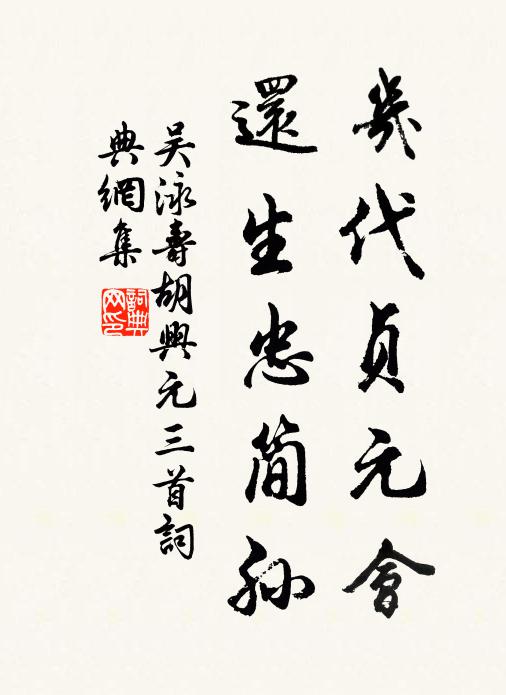 幾代貞元會
還生忠簡孫
吴泳壽胡興元三首詞
典網集
詞典
网印